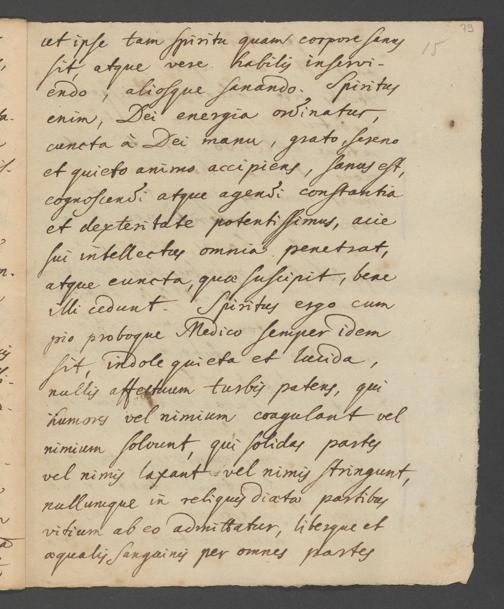 79
15
ut ipse tam spiritu quam corpore sanus
sit, atque vere habilis inservi-
endo, aliosque sanando. Spiritus
enim, Dei energia ordinatus,
cuncta à Dei manu, grato, sereno
et quieto animo accipiens, sanus est,
cognoscendi atque agendi constantia
et dexteritate potentissimus, acie
sui intellectus omnia penetrat,
atque cuncta, quæ suscipit, bene
illi cedunt. Spiritus ergo cum
pio proboque Medico semper idem
sit, indole quieta et lucida,
nullis affectuum turbis patens, qui
humores vel nimium coagulant vel
nimium solvunt, qui solidas partes
vel nimis laxant vel nimis stringunt,
nullumque in reliquis diæta partibus
vitium ab eo admittatur, liberque et
æqualis sanguinis per omnes partes